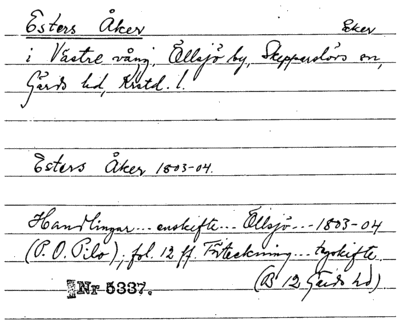 Esters Åker Åker
i Västre vång, Ellsjö by, Skepparslövs sn,
Gärds hd, Krstd. l.
Esters Åker 1803-04.
Handlingar... enskifte... Ellsjö... 1803-04
(P.O. Pilo), fol. 12 ff. Förteckning... tegskifte
(B 12 Gärds hd)
Nr 5337.